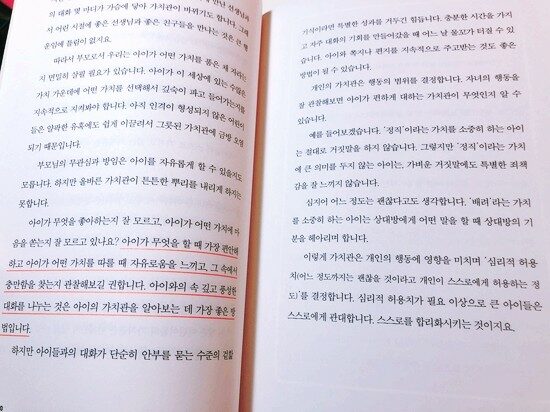 의 대화 몇 마디가 가슴에 닿아 가치관이 바뀌기도 합니다. 그래
서 어린 시절에 좋은 선생님과 좋은 친구들을 만나는 것은 큰 행
운임에 틀림이 없지요.
따라서 부모로서 우리는 아이가 어떤 가치를 품은 채 자라는
지 면밀히 살필 필요가 있습니다. 아이가 이 세상에 있는 수많은
가치 가운데에 어떤 가치를 선택해서 깊숙이 파고 들어가는지를
지속적으로 지켜봐야 합니다. 아직 인격이 형성되지 않은 어린이
들은 얄팍한 유혹에도 쉽게 이끌려서 그릇된 가치관에 금방 오염
되기 때문입니다.
부모님의 무관심과 방임은 아이를 자유롭게 할 수 있을지도
모릅니다. 하지만 올바른 가치관이 튼튼한 뿌리를 내리게 하지는
못합니다.
아이가 무엇을 좋아하는지 잘 모르고, 아이가 어떤 가치에 마
음을 쏟는지 잘 모르고 있나요? 아이가 무엇을 할 때 가장 편안해
하고 아이가 어떤 가치를 따를 때 자유로움을 느끼고, 그 속에서
충만함을 찾는지 관찰해보길 권합니다. 아이와의 속 깊고 풍성한
대화를 나누는 것은 아이의 가치관을 알아보는 데 가장 좋은 방
법입니다.
하지만 아이들과의 대화가 단순히 안부를 묻는 수준의 겉핥
기식이라면 특별한 성과를 거두긴 힘듭니다. 충분한 시간을 가지
고 자주 대화의 기회를 만들어갔을 때 어느 날 물꼬가 터질 수 있
습니다. 아이와 쪽지나 편지를 지속적으로 주고받는 것도 좋은
방법이 될 수 있습니다.
개인의 가치관은 행동의 범위를 결정합니다. 자녀의 행동을
잘 관찰해보면 아이가 편하게 대하는 가치관이 무엇인지 알 수
있습니다.
예를 들어보겠습니다. '정직'이라는 가치를 소중히 하는 아이
는 절대로 거짓말을 하지 않습니다. 그렇지만 '정직'이라는 가치
에 큰 의미를 두지 않는 아이는, 가벼운 거짓말에도 특별한 죄책
감을 잘 느끼지 않습니다.
심지어 어느 정도는 괜찮다고도 생각합니다. '배려'라는 가치
를 소중히 하는 아이는 상대방에게 어떤 말을 할 때 상대방의 기
분을 헤아리며 합니다.
이렇게 가치관은 개인의 행동에 영향을 미치며 '심리적 허용
치(어느 정도까지는 괜찮을 것이라고 개인이 스스로에게 허용하는 정
도)'를 결정합니다. 심리적 허용치가 필요 이상으로 큰 아이들은
스스로에게 관대합니다. 스스로를 합리화시키는 것이지요.